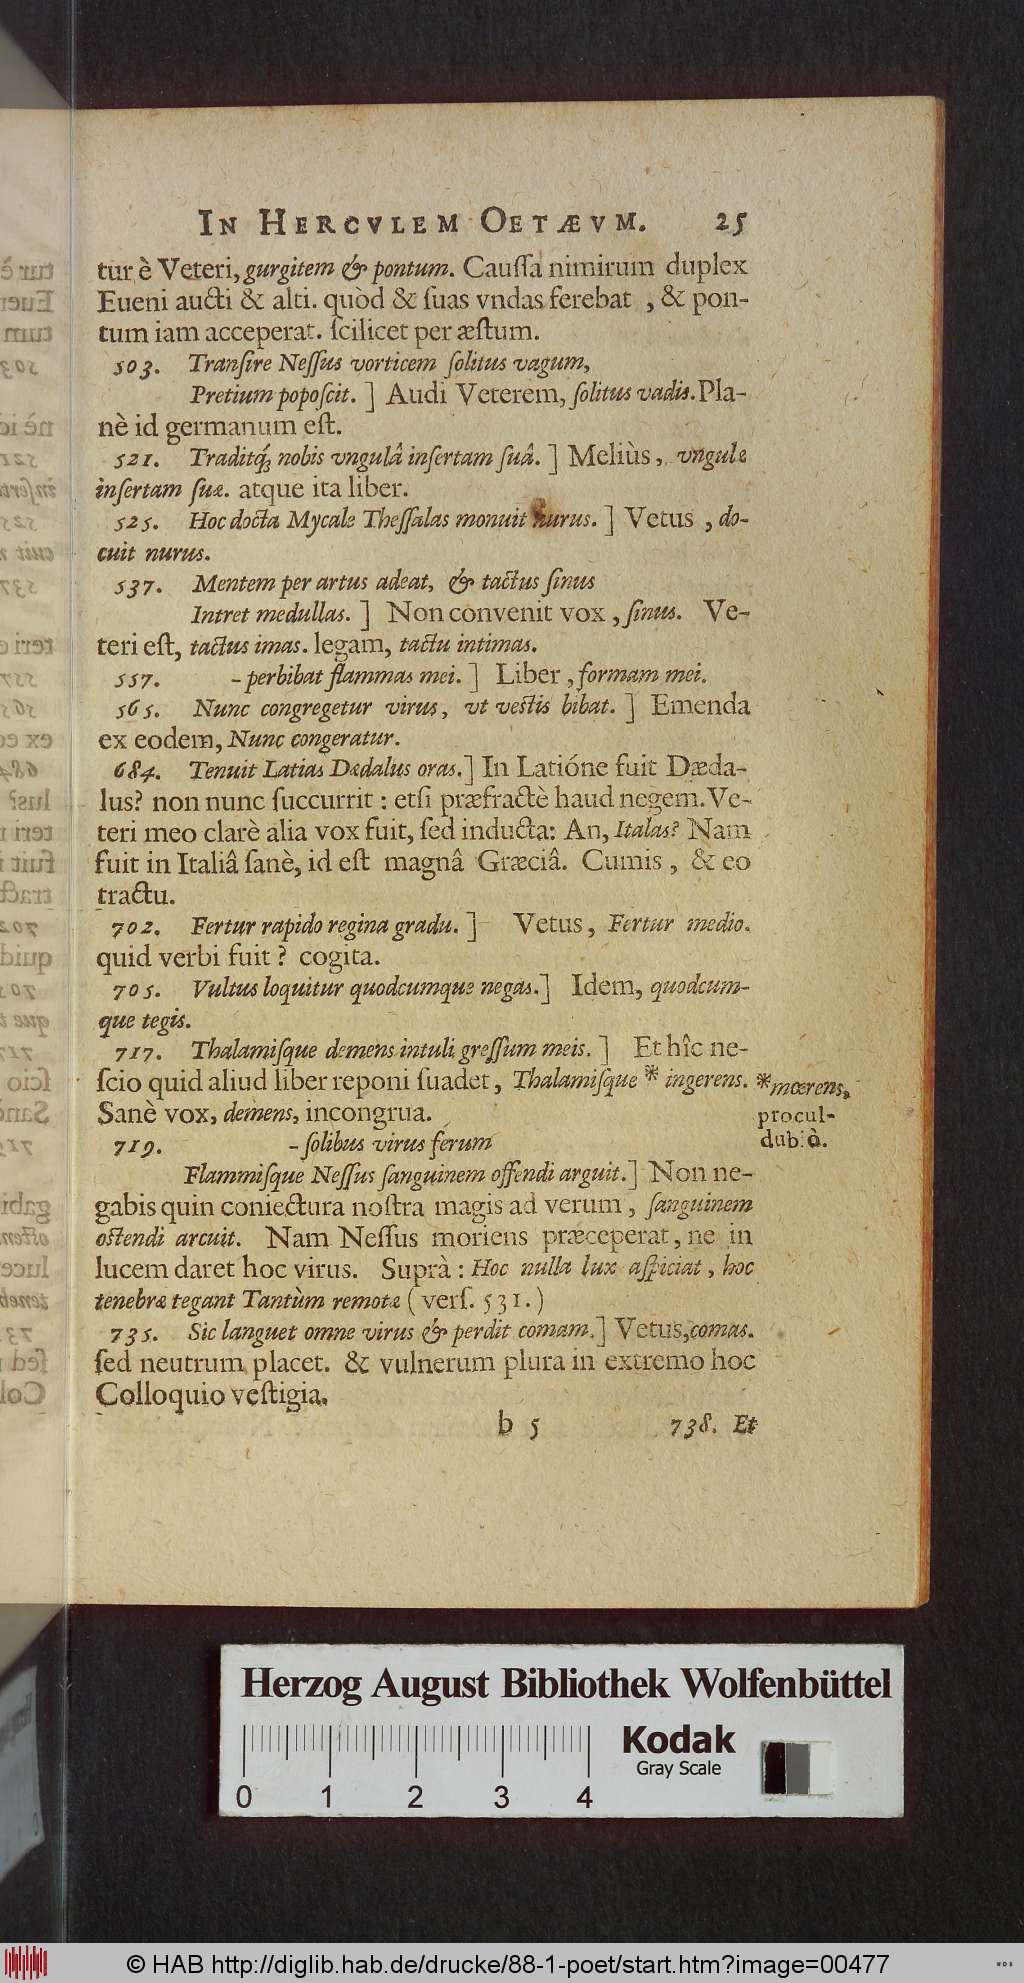 IN HERCVLEM OETÆVM. 25
tur è Veteri, gurgitem & pontum. Cauſſa nimirum duplex
Eueni aucti & alti. quòd & ſuas vndas ferebat , & pon-
tum iam acceperat. ſcilicet per æſtum.
503. Tranſire Neſſus vorticem ſolitus vagum,
Pretium popoſcit. ] Audi Veterem, ſolitus vadis. Pla-
nè id germanum eſt.
521. Traditq́; nobis vngulâ inſertam ſuâ. ] Meliùs, vngulæ
inſertam ſuæ. atque ita liber.
525. Hoc docta Mycale Theſſalas monuit nurus. ] Vetus , do-
cuit nurus.
537. Mentem per artus adeat, & tactus ſinus
Intret medullas. ] Non convenit vox , ſinus. Ve-
teri eſt, tactus imas. legam, tactu intimas.
557. - perbibat flammas mei. ] Liber , formam mei.
565. Nunc congregetur virus, vt veſtis bibat. ] Emenda
ex eodem, Nunc congeratur.
684. Tenuit Latias Dædalus oras. ] In Latióne fuit Dæda-
lus? non nunc ſuccurrit : etſi præfractè haud negem. Ve-
teri meo clarè alia vox fuit, ſed inducta: An, Italas? Nam
fuit in Italiâ ſanè, id eſt magnâ Græciâ. Cumis , & eo
tractu.
702. Fertur rapido regina gradu. ] Vetus, Fertur medio.
quid verbi fuit ? cogita.
705. Vultus loquitur quodcumque negas. ] Idem, quodcum-
que tegis.
717. Thalamiſque demens intuli greſſum meis. ] Et hîc ne-
ſcio quid aliud liber reponi ſuadet, Thalamiſque * ingerens. *mœrens,
Sanè vox, demens, incongrua. procul-
719. - ſolibus virus ferum dubiò.
Flammiſque Neſſus ſanguinem offendi arguit. ] Non ne-
gabis quin coniectura noſtra magis ad verum , ſanguinem
oſtendi arcuit. Nam Neſſus moriens præceperat, ne in
lucem daret hoc virus. Suprà : Hoc nulla lux aſpiciat , hoc
tenebræ tegant Tantùm remotæ ( verſ. 531. )
735. Sic languet omne virus & perdit comam. ] Vetus, comas.
ſed neutrum placet. & vulnerum plura in extremo hoc
Colloquio veſtigia.
b 5 738. Et
Herzog August Bibliothek Wolfenbüttel
Kodak
Gray Scale
0 1 2 3 4
© HAB http://diglib.hab.de/drucke/88-1-poet/start.htm?image=00477